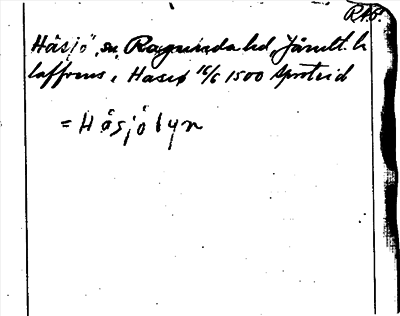 RAP.
Håsjö, sn, Ragunda hd, Jämtl. l.
laffrens i Hasiø 16/6 1500
= Håsjöbyn